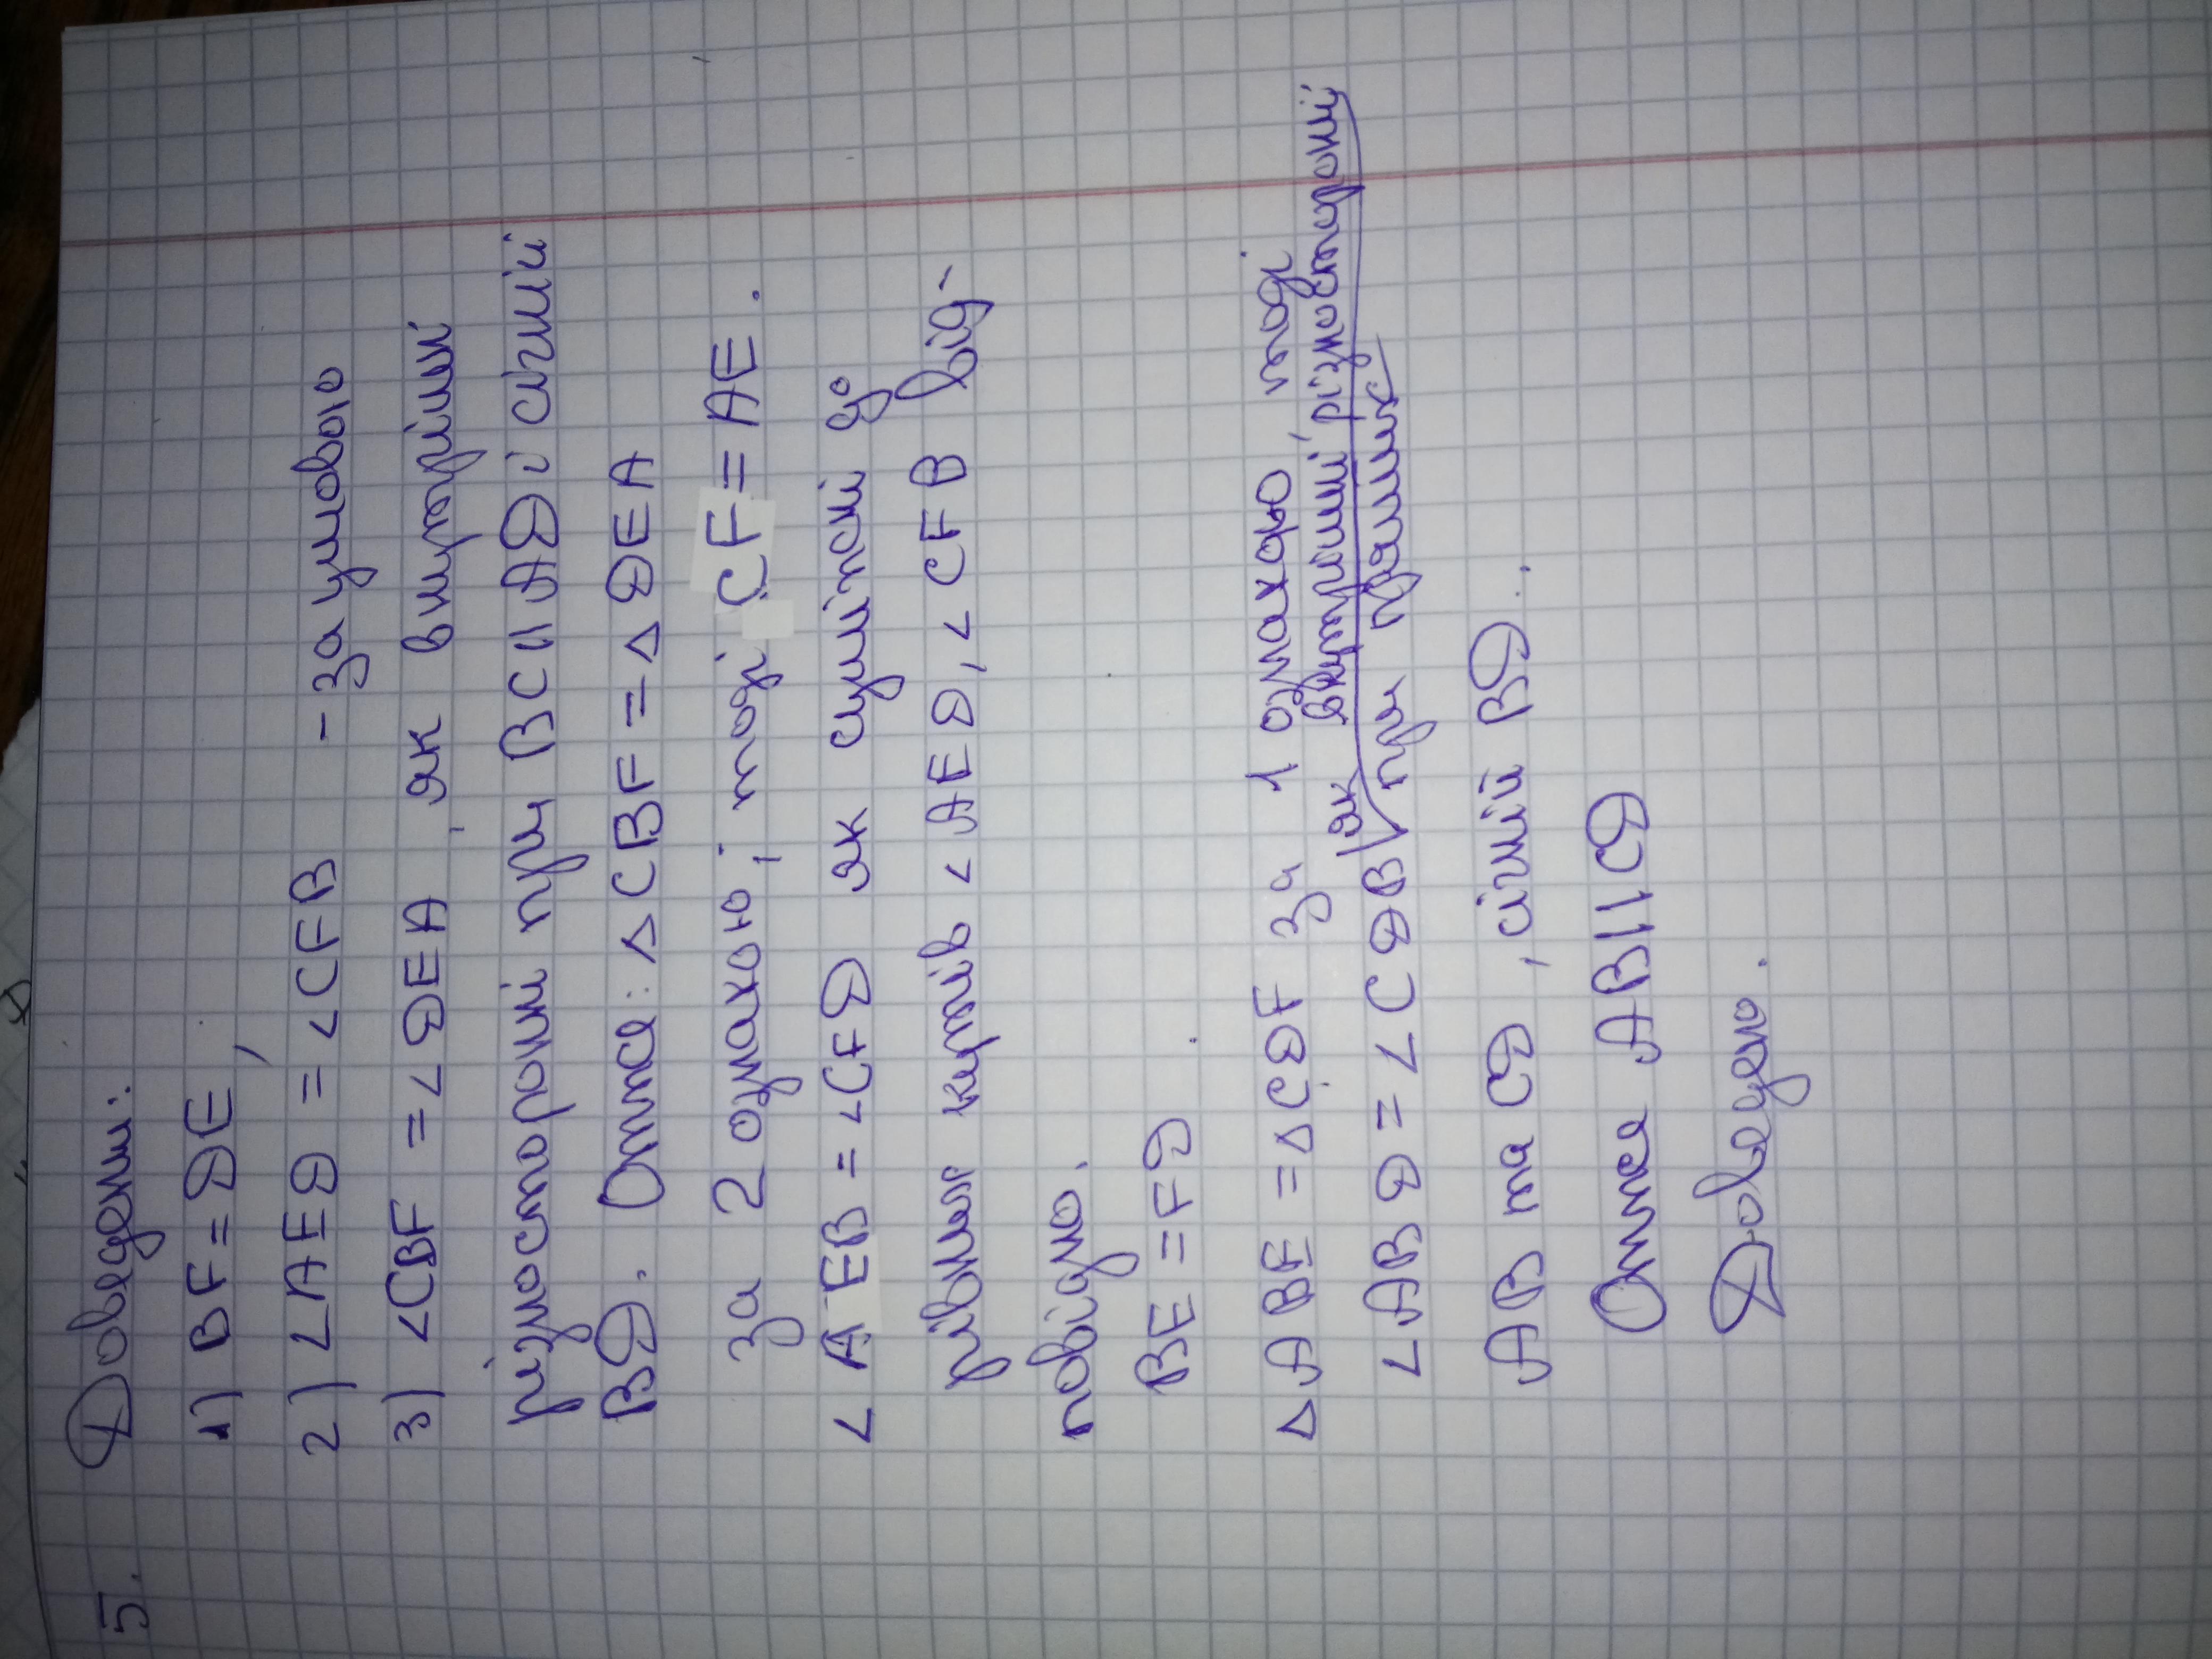 5. Доведення:
1) BF = DE,
2) ∠AED = ∠CFB - за умовою
3) ∠CBF = ∠DEA, як внутрішні
різносторонні при BC || AD і січній
BD. Отже: △CBF = △DEA
за 2 ознакою, і тоді CF = AE.
∠AEB = ∠CFD як суміжні до
рівних кутів ∠AED, ∠CFB від-
повідно.
BE = FD
△ABE = △CDF за 1 ознакою тоді
∠ABD = ∠CDB як внутрішні, різносторонні при прямих
AB та CD, січній BD.
Отже AB || CD
Доведено.